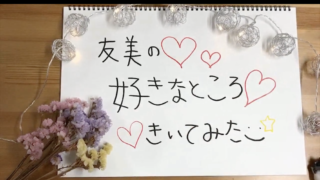 友美の♡♡
好きなところ♡
♡きいてみた☺☆